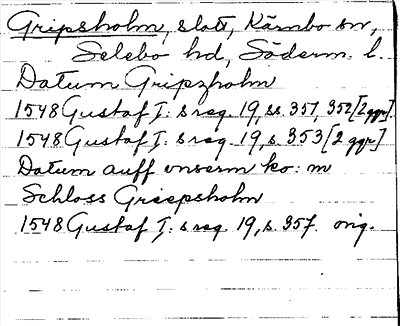 Gripsholm, slott, Kärnbo sn,
Selebo hd, Söderm. l.
Datum Gripzholm
1548 Gustaf I: s reg. 19, ss. 351, 352 [2 ggr].
1548 Gustaf I: s reg. 19, s. 353 [2 ggr]
Datum auff vnserm ko: m
Schloss Griepsholm
1548 Gustaf I: s reg. 19, s. 357. orig.